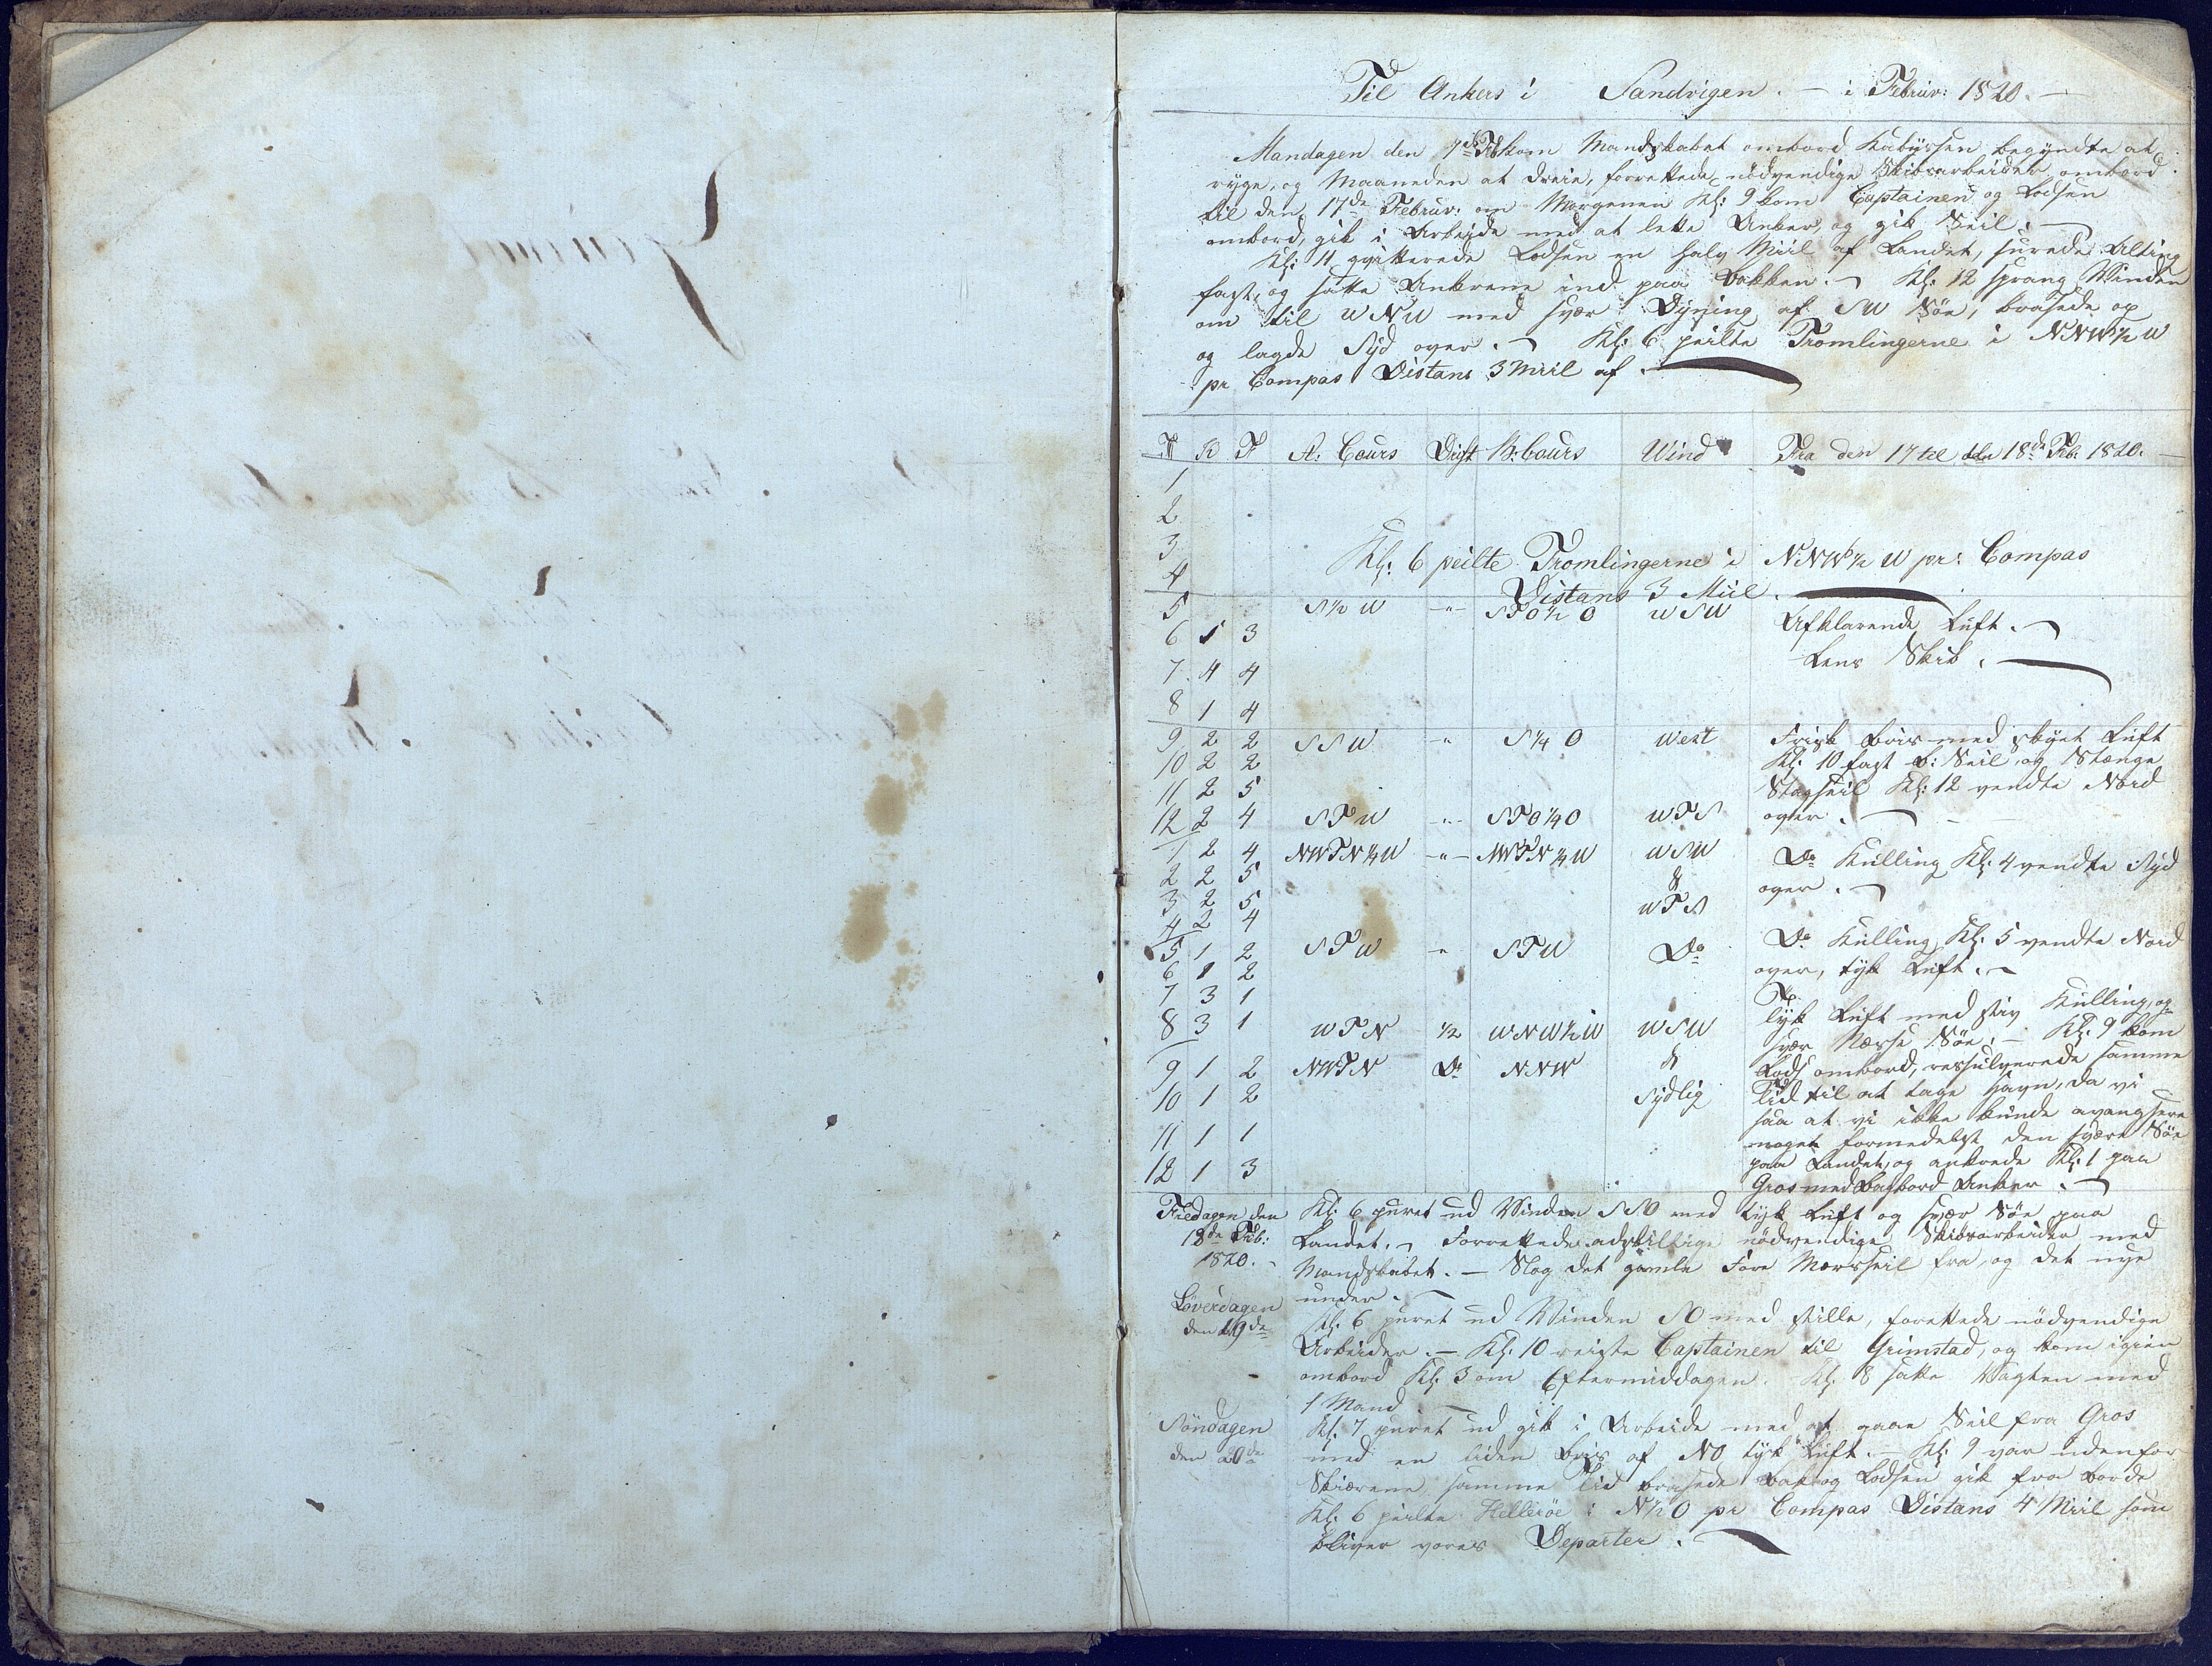 Til Ankers i Sandvigen. — i Februar: 1820. —
Mandagen den 7de Feb kom Mandskabet ombord Kabyssen begyndte at
ryge, og Maaneden at dreie, forrettede nödvendige Skibsarbeider ombord
til den 17de Februar: om Morgenen Kl: 9 kom Captainen og Lodsen
ombord, gik i Arbeide med at lette Anker, og gik Seil. —
Kl: 11 qvitterede Lodsen en halv Miil af Landet, surede Alting
fast, og satte Ankrene ind paa Bakken. — Kl: 12 sprang Vinden
om til WNW med svær Dyning af SW Söe, brasede op
og lagde Syd over. — Kl: 6 peilte Tromlingerne i NNW½W
pr Compas Distans 3 Miil af.
T K F A: Cours Drift B: Cours Wind Fra den 17 til den 18de Feb. 1820. —
1
2
3
Kl: 6 peilte Tromlingerne i NNW½ W pr: Compas
4
Distans 3 Miil.
5 S½ W -"- STO½ O WSW Afklarende Luft. —
6 1 3
7 4 4 Lens Skib. —
8 1 4
9 2 2 SSW " S¼ O West Frisk Bris med skyet Luft
10 2 2 Kl: 10 fast B: Seil, og Stænge
11 2 5 Stagseil Kl: 12 vendte Nord
12 2 4 STW -"- STO¼O WTS over. —
1 2 4 NWTN¼W -"- NWTN¼W WSW Do Kulling Kl: 4 vendte Syd
2 2 5 & over. —
3 2 5 WTS
4 2 4
5 1 2 STW " STW Do Do Kulling Kl: 5 vendte Nord
6 1 2 over, tyk Luft. —
7 3 1
8 3 1 WTN ½ WNW½W WSW Tyk Luft med stiv Kulling, og
svær Næsse Söe. — Kl: 9 kom
9 1 2 NWTN Do NNW & Lods ombord, ressulverede samme
10 1 2 Sydlig Tid til at tage Havn, da vi
saa at vi ikke kunde avangsere
11 1 1 noget formedelst den svære Söe
12 1 3 paa Landet, og ankrede Kl: 1 paa
Gros med Bagbord Anker. —
Fredagen den Kl: 6 purret ud Vinden SSO med tyk Luft og svær Söe paa
18de Feb: Landet. — Forrettede adskillige nödvendige Skibsarbeider med
1820. — Mandskabet. — Slog det gamle Fore Mersseil fra, og det nye
under. —
Löverdagen Kl: 6 purret ud Vinden SO med stille, forettede nödvendige
den 19de Arbeider. — Kl: 10 reiste Captainen til Grimstad, og kom igien
ombord Kl: 3 om Eftermiddagen. Kl: 8 satte Vagten med
1 Mand —
Söndagen Kl: 7 purret ud gik i Arbeide med at gaae Seil fra Gros
den 20de med en liden Bris af NO tyk Luft. — Kl: 9 var udenfor
Skiærene, samme Tid brasede Bak og Lodsen gik fra Borde
Kl: 6 peilte Hellesöe i N½O pr Compas Distans 4 Miil som
bliver vores Departer. —